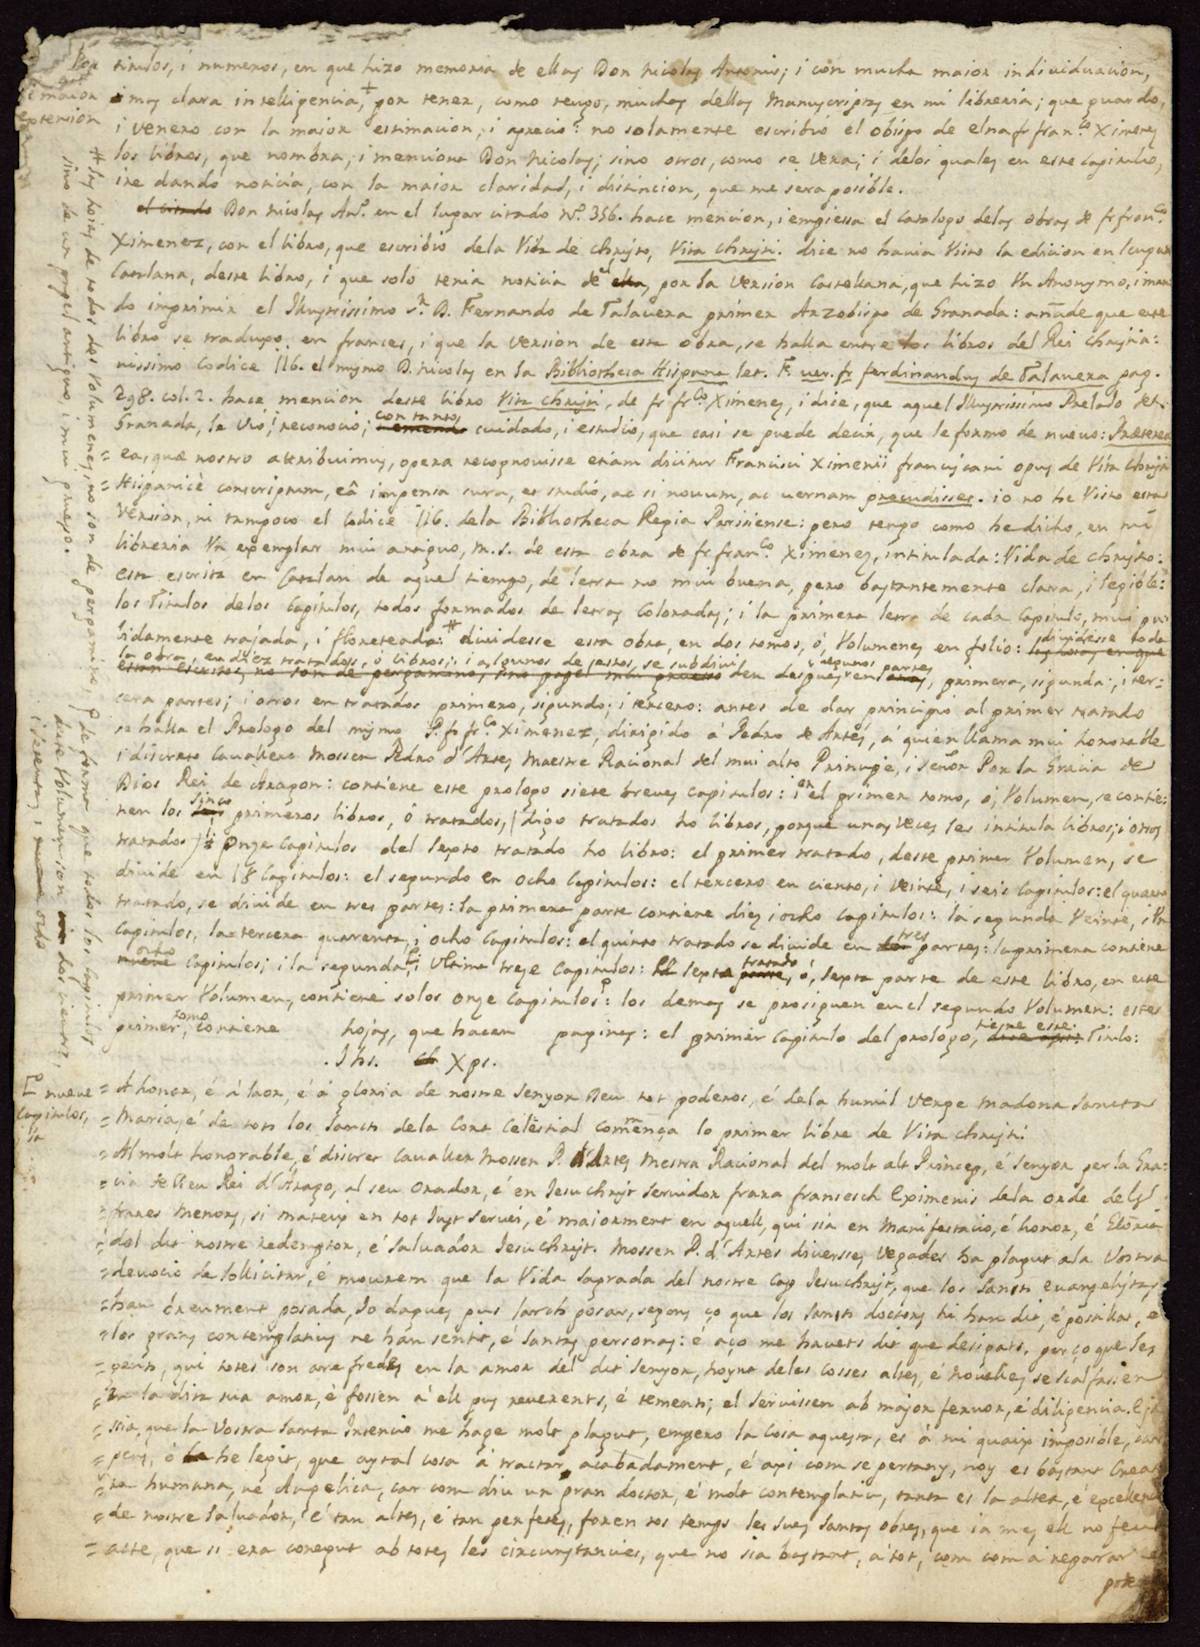 titulos, i numeros, en que hizo memoria de ellas Don Nicolas Antonio; i con mucha maior individuacion,
i mas clara intelligencia, por tener, como tengo, muchas dellas Manuscriptas en mi libreria; que guardo,
i venero con la maior estimacion, i aprecio: no solamente escribió el obispo de elna fr fran.co Ximenes
los libros, que nombra, i menciona Don Nicolas; sino otros, como se vera; i delos quales en este Capitulo,
ire dando noticia, con la maior claridad, i distincion, que me sera posible.
el citado Don Nicolas An.o en el lugar citado N.o 356. hace mencion, i empiessa el Catalogo delas obras de fr fran.co
Ximenez, con el libro, que escribio dela Vida de Christo, Vita Christi. dice no havia Visto la edicion en lengua
Catalana, deste libro, i que solo tenia noticia de el por la Version Castellana, que hizo Un Anonymo, i man
do imprimir el Illustrissimo S.r D. Fernando de Talavera primer Arzobispo de Granada: añade que este
libro se traduxo en frances, i que la version de esta obra, se halla entre los libros del Rei Christia:
nissimo Codice 116. el mismo D. Nicolas en la Bibliotheca Hispana let. F. ver. fr ferdinandus de Talavera pag.
298. col. 2. hace mencion deste libro Vita Christi, de fr fr.co Ximenes, i dice, que aquel Illustrissimo Prelado de
Granada, le Vió, i reconoció, con tanto cuidado, i estudio, que casi se puede decir, que le formo de nuevo: Præterea
= ea, quæ nostro attribuimus, opera recognovisse etiam dicitur Francisci Ximenii franciscani opus de Vita Christi
= Hispanicè conscriptum, eâ impensa cura, et studio, ac si novum, ac vernam procudisset. io no he Visto esta
Version, ni tampoco el Codice 116. dela Bibliotheca Regia Parisiense: pero tengo como he dicho, en mi
libreria Un exemplar mui antiguo, m.s. de esta obra de fr fran.co Ximenez, intitulada: Vida de Christo:
esta escrita en Catalan de aquel tiempo, de letra no mui buena, pero bastantemente clara, i legible:
los Titulos delos Capitulos, todos formados de letras Coloradas; i la primera letra de cada Capitulo, mui
lidamente trajada, i floreteada: # dividesse esta obra, en dos tomos, ó Volumenes en folio: dividesse toda
la obra, en diez tratados, ó libros; i algunos de estos, se subdividen despues en algunas partes, primera, segunda, i ter=
cera partes; i otros en tratados primero, segundo; i tercero: antes de dar principio al primer tratado
se halla el Prologo del mismo P. fr fr.co Ximenez, dirigido á Pedro de Artés, á quien llama mui honorable
i discreto Cavallero Mossen Pedro d'Artes Maestre Racional del mui alto Principe, i Señor Por la Gracia de
Dios Rei de Aragon: contiene este prologo siete breves Capitulos: i en el primer tomo, ó Volumen, se contie:
nen los sinco primeros libros, ó tratados, (digo tratados ho libros, porque unas Veces les intitula libros; i otras
tratados) i onze Capitulos del sexto tratado ho libro: el primer tratado, deste primer Volumen, se
divide en 18 Capitulos: el segundo en ocho Capitulos: el tercero en ciento, i Veinte, i seis Capitulos: el quarto
tratado, se divide en tres partes: la primera parte contiene dies i ocho Capitulos: la segunda Veinte, i Un
Capitulos, la tercera quarenta, i ocho Capitulos: el quinto tratado se divide en tres partes: la primera contiene
ocho Capitulos; i la segunda, i Ultima treze Capitulos: el sexto tratado, ó, sexta parte de este libro, en este
primer Volumen, contiene solos onze Capitulos: los demas se prosiguen en el segundo Volumen: este
primer tomo, contiene hojas, que hacen paginas: el primer Capitulo del prologo, tiene este Titulo:
. Jhs. Xps.
= A honor, é á laor, é á gloria de nostre Senyor Deu tot poderos, é dela humil Verge Madona Sancta
= Maria, é de tots los Sancts dela Cort Celestial Comença lo primer libre de Vita Christi.
= Al molt honorable, é discret Cavaller Mossen P. d'Artes Mestra Racional del molt alt Princep, é Senyor per la Gra=
= cia de Deu Rei d'Arago, al seu Orador, é en Jesu Christ Servidor frara francesch Eximenis dela orde dels
= frares Menors, si mateix en tot Just Servei, é maiorment en aquell, qui sia en Manifestacio, é honor, é Gloria
= del dit nostre redemptor, é Salvador Jesu Christ. Mossen P. d'Artes diverses Vegades ha plagut ala Vostra
= devocio de sollicitar, é mourem que la Vida Sagrada del nostre Cap Jesu Christ, que los Sants Evangelistas
= han breument posada, Jo degues pus larch posar, segons ço que los Sants doctors hi han dit, é posikat, e
= los grans contemplatius ne han sentit, e Santas personas: e aço me havets dit que desigats, per ço que les
= gents, qui totes son are fredes en la amor del dit Senyor, hoynt deles Cosses altes, é Novelles se scalfassen
= en la dita sua amor, é fossen á ell pus reverents, é tements; el Servissen ab major fervor, é diligencia. E ja
= sia, que la Vostra Santa Intencio me hage molt plagut, empero la Cosa aquesta, es á mi quaix impossible, car
= pens, ó he legit, que aytal cosa á tractar, acabadament, é axi com se pertany, noy es bastant Crea
= ra humana, ne Angelica, car com diu un gran doctor, é molt contemplatiu, tanta es la altea, é excellencia
= de nostre Salvador, é tan altes, é tan perfetes, foren tos temps les sues Santas obres, que ia mes ell no feu
= acte, que si era conegut ab totes les circunstancies, que no sia bastant, á tot, com com á reparar
i maior
extension
# las hojas de todos dos Volumenes, no son de pergamino,
sino de un papel antiguo i mui grueso.
de forma que todos los Capitulos
deste Volumen son dos cientos,
i sesenta, i ocho
nueve
Capitulos,
la